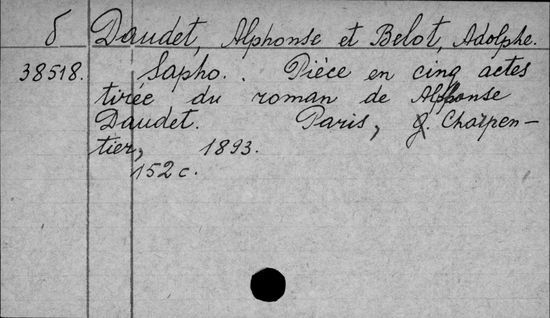 б Daudet, Alphonse et Belot, Adolphe.
38518. Sapho.. Pièce en cinq actes
tirée du roman de Alphonse
Daudet. Paris, G. Charpen-
tier, 1893.
152 c.